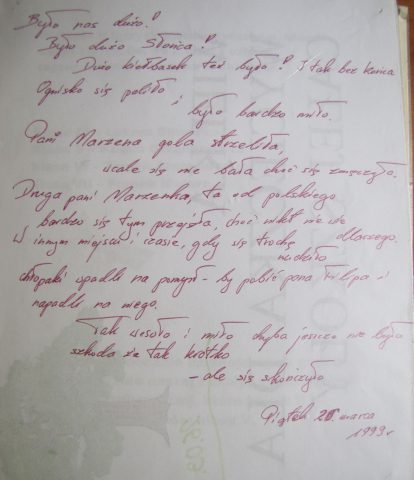 Było nas dużo!
Było dużo Słońca!
Dużo kiełbasek też było! I tak bez końca
Ognisko się paliło
i było bardzo miło.
Pani Marzena gola strzeliła,
wcale się nie bała choć się zmęczyła.
Druga pani Marzenka, ta od polskiego
bardzo się tym przejęła, choć nikt nie wie dlaczego.
W innym miejscu i czasie, gdy się trochę nudziło
chłopaki wpadli na pomysł - by pobić pana Filipa i
napadli na niego.
Tak wesoło i miło chyba jeszcze nie było
szkoda że tak krótko
- ale się skończyło
Piątek marca
1999r
26.03